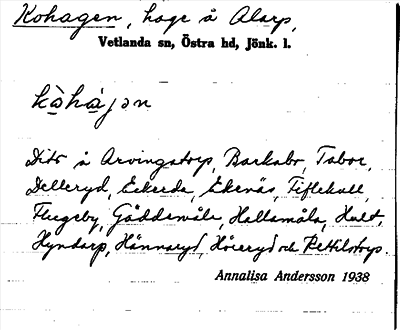 Kohagen, hage å Alarp,
Vetlanda sn, Östra hd, Jönk. l.
kòhàjən
Dito å Arvingstorp, Barkabo, Tabor,
Delleryd, Eckerda, Ekenäs, Fiflekull,
Flugeby, Gäddevåle, Hallamåla, Hult,
Hyndarp, Hännaryd, Höieryd och Pettilstorp.
Annalisa Andersson 1938